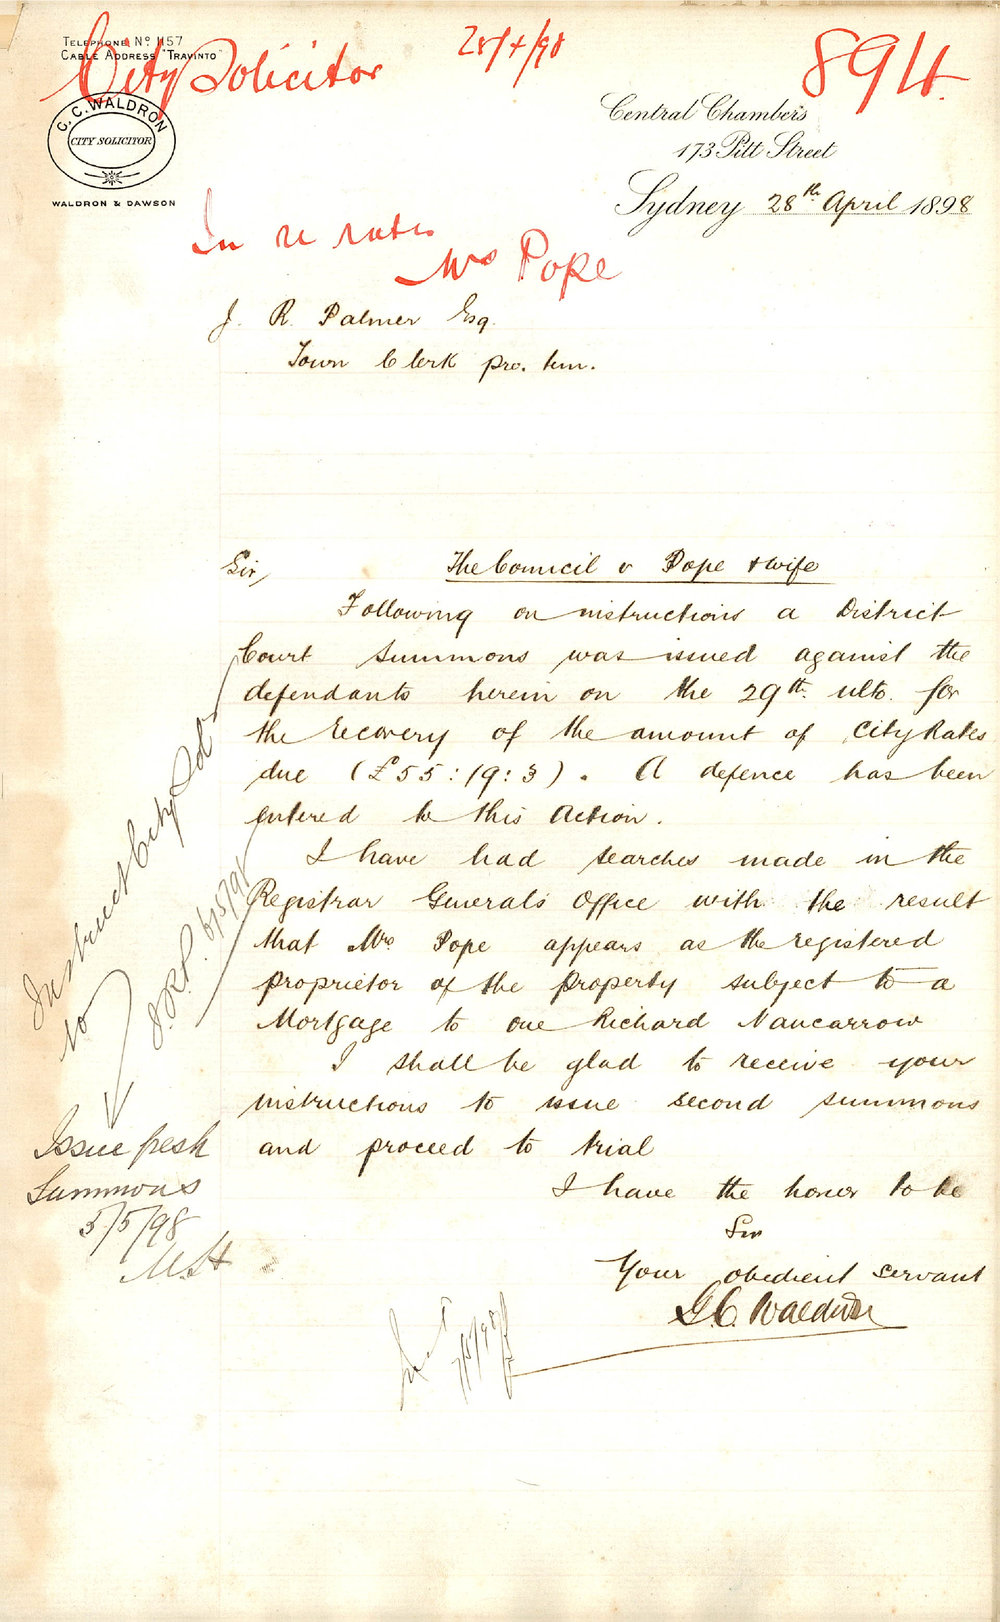 TELEPHONE Nº 1157
CABLE ADDRESS "TRAVINTO"
City Solicitor
28/4/98
894
C. C. WALDRON
CITY SOLICITOR
WALDRON & DAWSON
Central Chambers
173 Pitt Street
Sydney 28th April 1898
In re rates
Mrs Pope
J. R. Palmer Esq.
Town Clerk pro. tem.
Sir,
The Council v Pope & wife
Following on instructions a District
Court Summons was issued against the
defendants herein on the 29th. ulto. for
the recovery of the amount of City Rates
due (£55:19:3). A defence has been
entered to this Action.
I have had searches made in the
Registrar General's Office with the result
that Mrs Pope appears as the registered
proprietor of the property subject to a
Mortgage to one Richard Nancarrow
I shall be glad to receive your
instructions to issue second summons
and proceed to trial
I have the honor to be
Sir
Your obedient servant
G. C. Waldron
Instruct City Sol
to
J.R.P. 6/5/98
Issue fresh
Summons
5/5/98